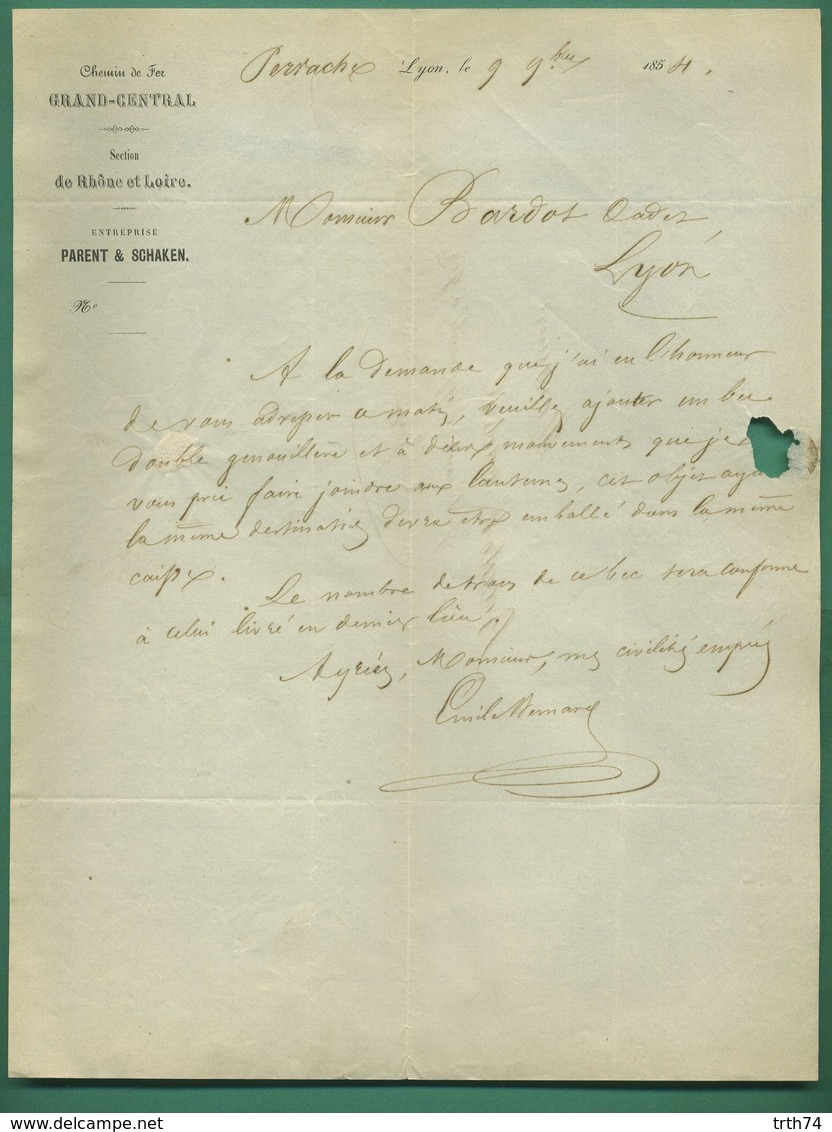 Chemin de Fer
GRAND-CENTRAL
Section
de Rhône et Loire.
ENTREPRISE
PARENT & SCHAKEN.
No
Perrache Lyon, le 9 9bre 1854.
Monsieur Bardot Cadet,
Lyon
A la demande que j'ai eu l'honneur
de vous adresser ce matin, veuillez ajouter un bec
double genouillère et à deux mouvements que je
vous prie faire joindre aux lanternes, cet objet aya
la même destination devra être emballé dans la même
caisse.
Le nombre de trous de ce bec sera conforme
à celui livré en dernier lieu.
Agréez, Monsieur, mes civilités empressées
Emile Bernard
delcampe.net
trth74